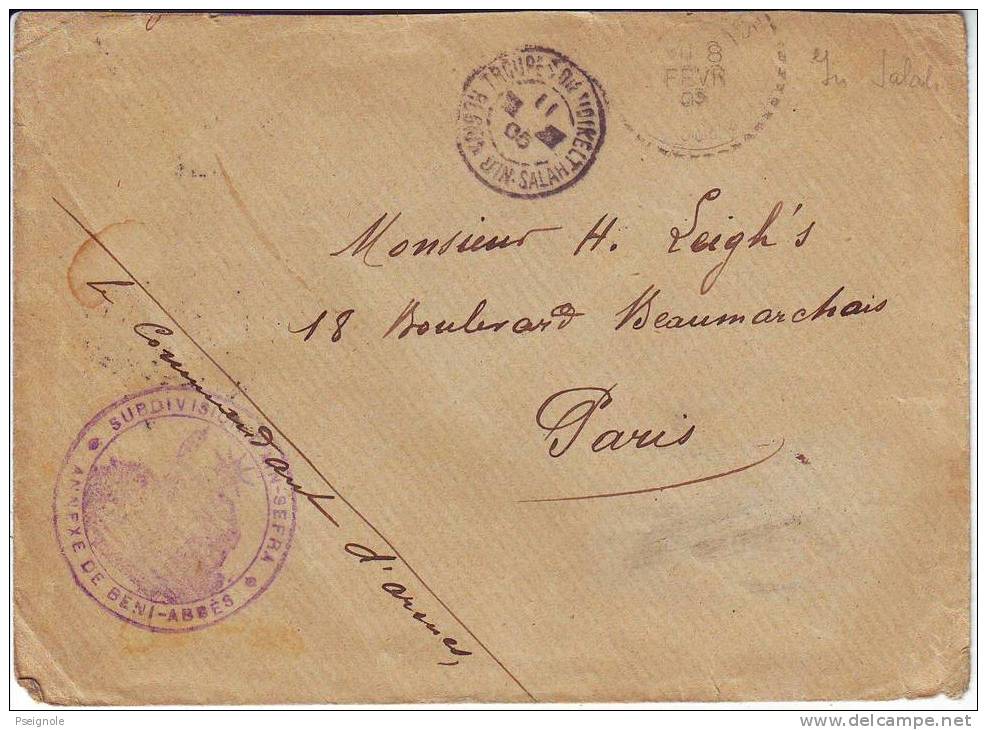 TROUPES DU TIDIKELT
IN-SALAH
11
05
8
FEVR
05
In Salah
Monsieur H. Leigh's
18 Boulevard Beaumarchais
Paris
Le Commandant d'armes,
SUBDIVISION D'AIN-SEFRA
ANNEXE DE BENI-ABBÈS
Pseignole
www.delcampe.net